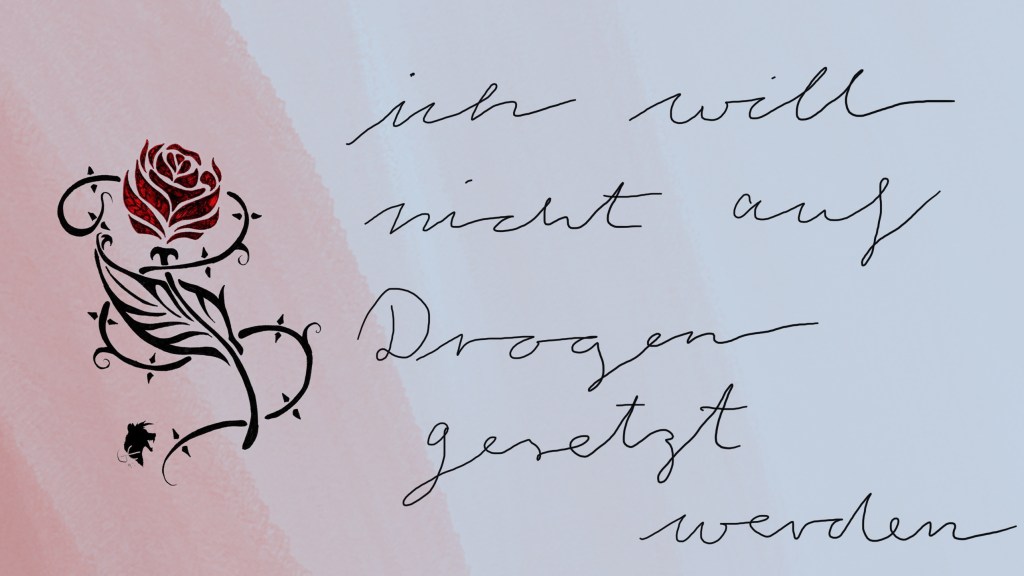 ich will
nicht auf
Drogen
gesetzt
werden